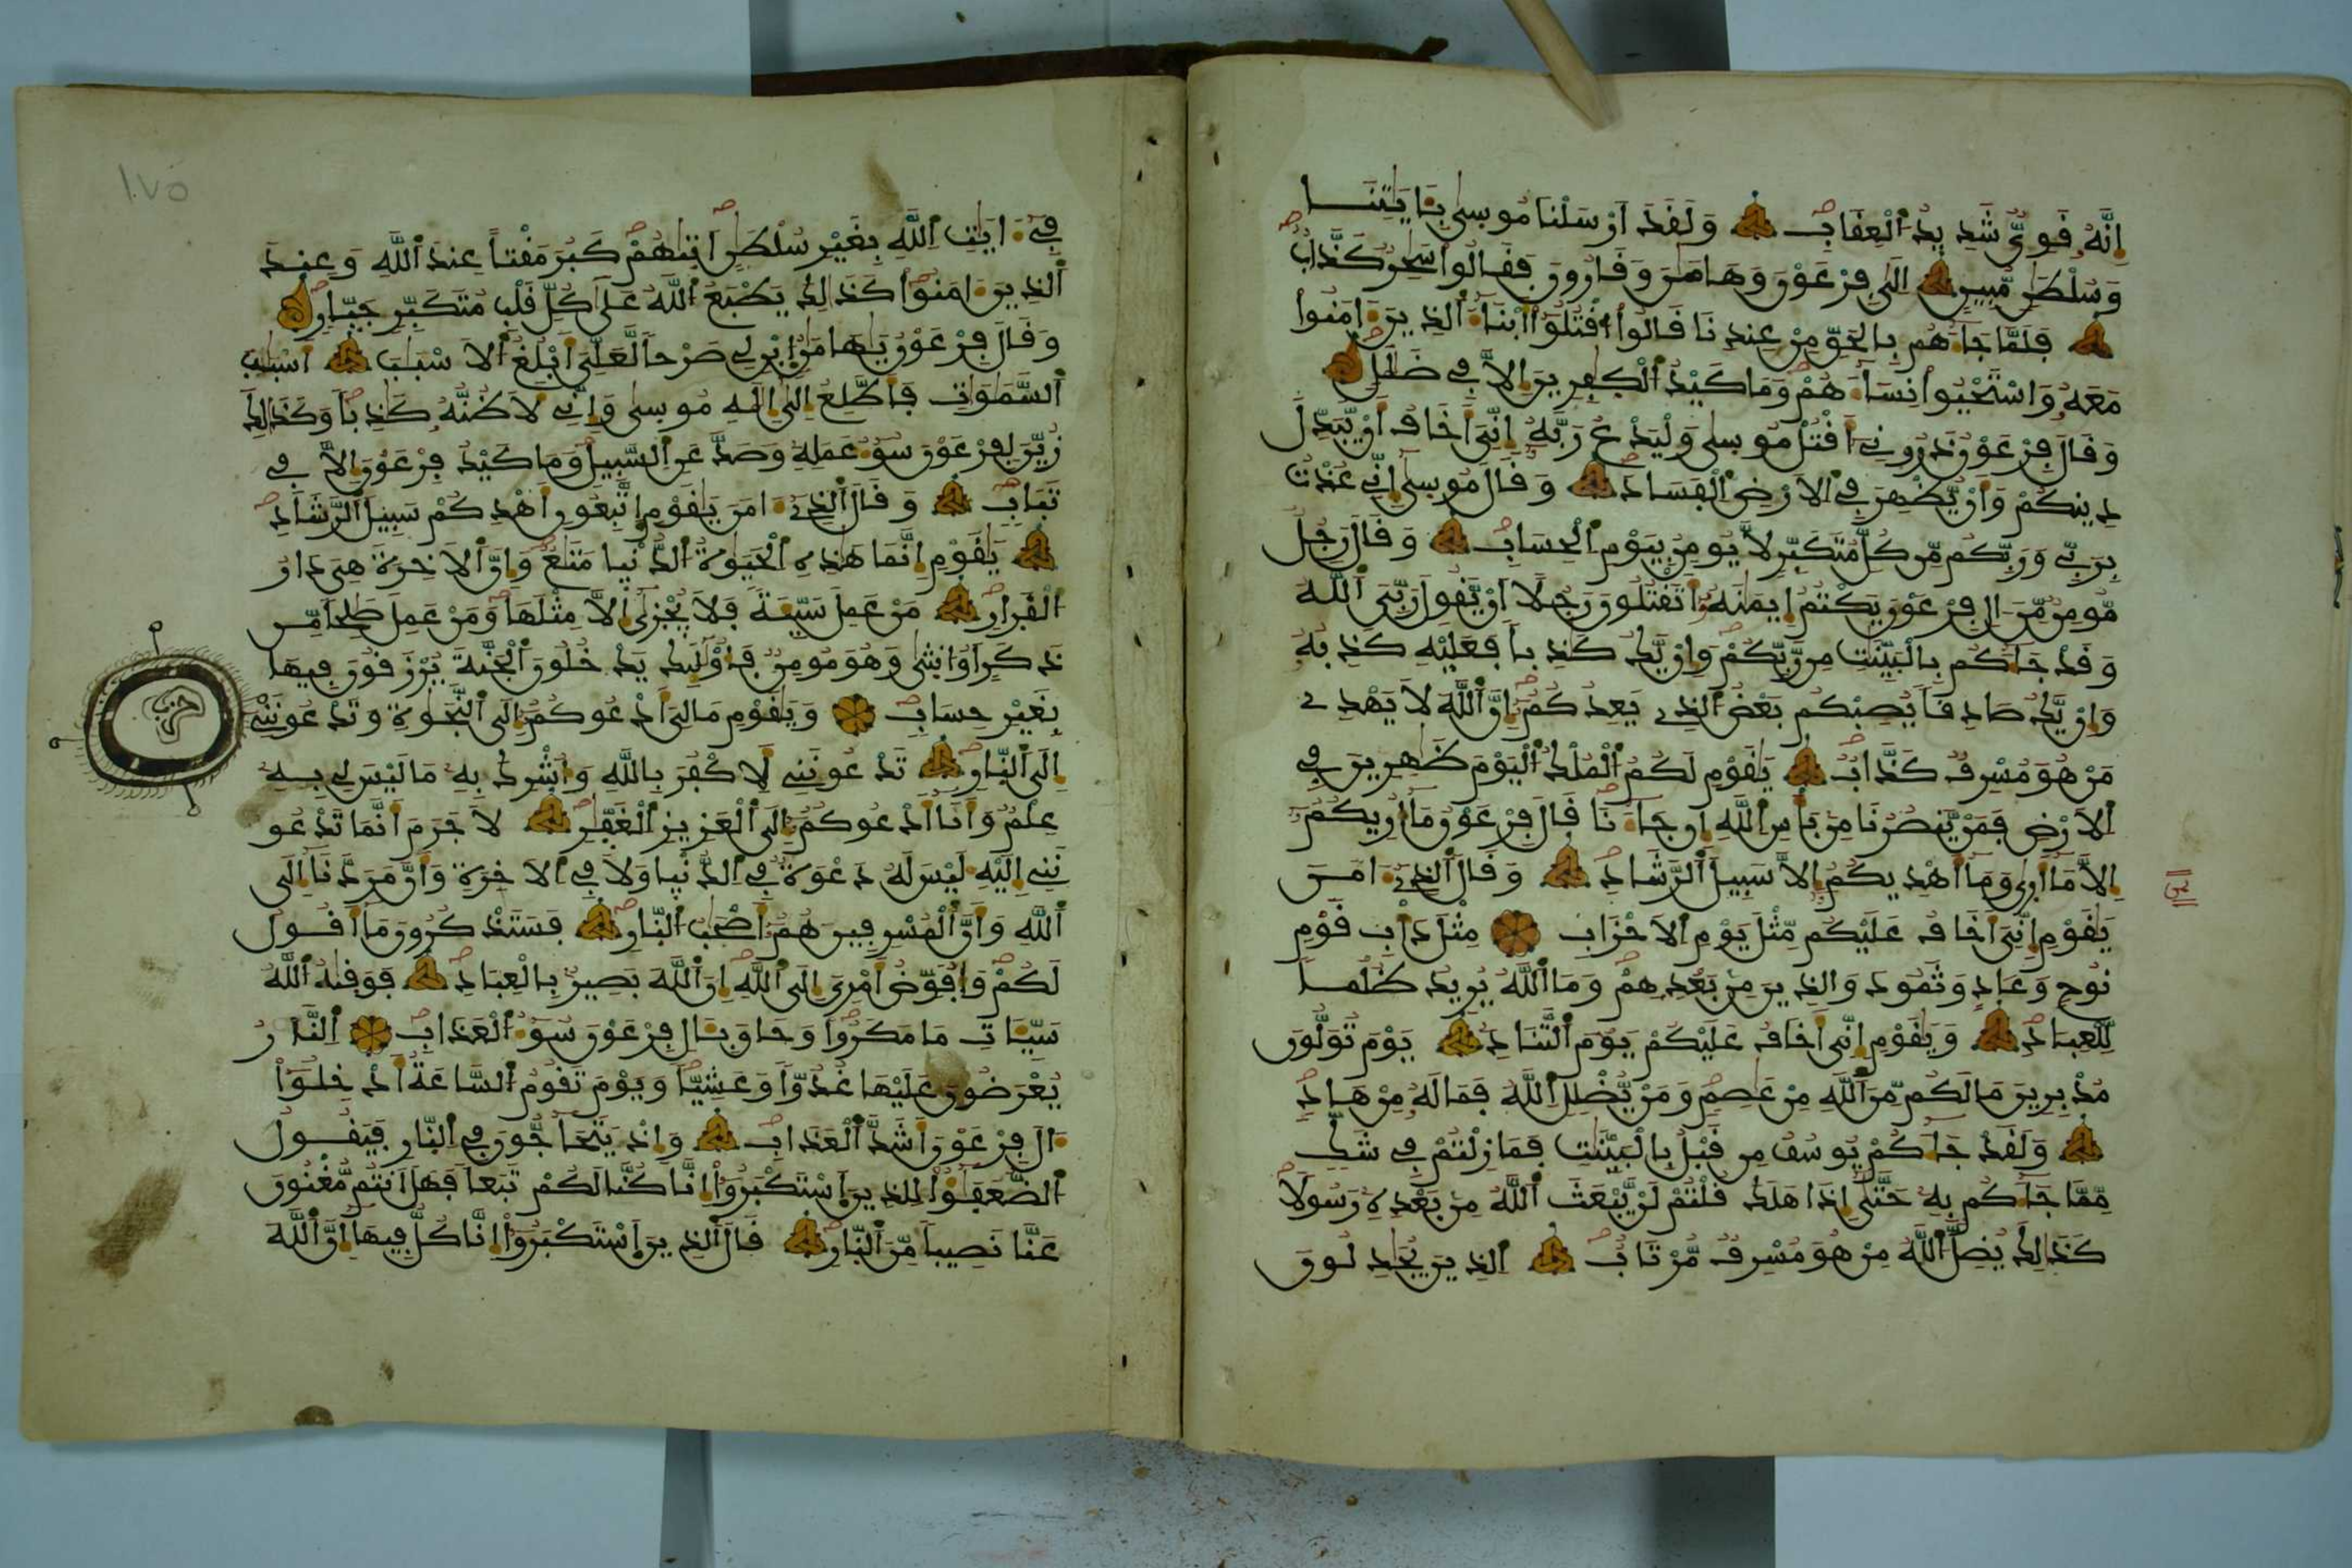 إنه قوي شديد العقاب ولقد ارسلنا موسى بـايتنا
وسلطن مبين الى فرعون وهامن وقارون فقالوا سحر كذاب
فلما جاءهم بالحق من عندنا قالوا اقتلوا ابناء الذين ءامنوا
معه واستحيوا نساءهم وما كيد الكفرين الا في ضلل
وقال فرعون ذروني اقتل موسى وليدع ربه إني أخاف أن يبدل
دينكم وان يظهر في الارض الفساد وقال موسى اني عذت
بربي وربكم من كل متكبر لا يومن بيوم الحساب وقال رجل
مومن من ال فرعون يكتم ايمنه اتقتلون رجلا ان يقول ربي الله
وقد جاءكم بالبينت من ربكم وان يك كذبا فعليه كذبه
وان يك صادقا يصبكم بعض الذي يعدكم ان الله لا يهدي
من هو مسرف كذاب يقوم لكم الملك اليوم ظهرين في
الارض فمن ينصرنا من باس الله ان جاءنا قال فرعون ما اريكم
الا ما ارى وما اهديكم الا سبيل الرشاد وقال الذي ءامن
يقوم اني اخاف عليكم مثل يوم الاحزاب مثل داب قوم
نوح وعاد وثمود والذين من بعدهم وما الله يريد ظلما
للعباد ويقوم اني اخاف عليكم يوم التناد يوم تولون
مدبرين مالكم من الله من عاصم ومن يضلل الله فماله من هاد
ولقد جاءكم يوسف من قبل بالبينت فمازلتم في شك
مما جاءكم به حتى اذا هلك قلتم لن يبعث الله من بعده رسولا
كذلك يضل الله من هو مسرف مرتاب الذين يجدلون
في ءايت الله بغير سلطن اتيهم كبر مقتا عند الله وعند
الذين ءامنوا كذلك يطبع الله على كل قلب متكبر جبار
وقال فرعون يهامن ابن لي صرحا لعلي ابلغ الاسبب اسبب
السموت فاطلع الى اله موسى واني لاظنه كذبا وكذلك
زين لفرعون سوء عمله وصد عن السبيل وما كيد فرعون الا في
تباب وقال الذي ءامن يقوم اتبعون اهدكم سبيل الرشاد
يقوم انما هذه الحيوة الدنيا متع وان الاخرة هي دار
القرار من عمل سيئة فلا يجزى الا مثلها ومن عمل صلحا من
ذكر او انثى وهو مومن فاولئك يدخلون الجنة يرزقون فيها
بغير حساب ويقوم مالي ادعوكم الى النجوة وتدعونني
الى النار تدعونني لاكفر بالله واشرك به ما ليس لي به
علم وانا ادعوكم الى العزيز الغفر لا جرم انما تدعو
نني اليه ليس له دعوة في الدنيا ولا في الاخرة وان مردنا الى
الله وان المسرفين هم اصحب النار فستذكرون ما اقول
لكم وافوض امري الى الله ان الله بصير بالعباد فوقيه الله
سيئات ما مكروا وحاق بـال فرعون سوء العذاب النار
يعرضون عليها غدوا وعشيا ويوم تقوم الساعة ادخلوا
ءال فرعون اشد العذاب واذ يتحاجون في النار فيقول
الضعفؤا للذين استكبروا انا كنا لكم تبعا فهل انتم مغنون
عنا نصيبا من النار قال الذين استكبروا انا كل فيها ان الله
حزب
١٧٥